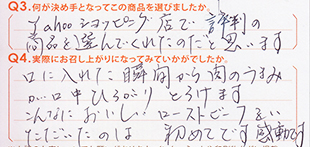 Q3.何が決め手となってこの商品を選びましたか
Yahooショッピング店で評判の
商品を選んでくれたのだと思います
Q4.実際にお召し上がりになってみていかがでしたか。
口に入れた瞬間から肉のうまみ
が口中ひろがり とろけます
こんなにおいしいローストビーフをい
ただいたのは 初めてです感動です